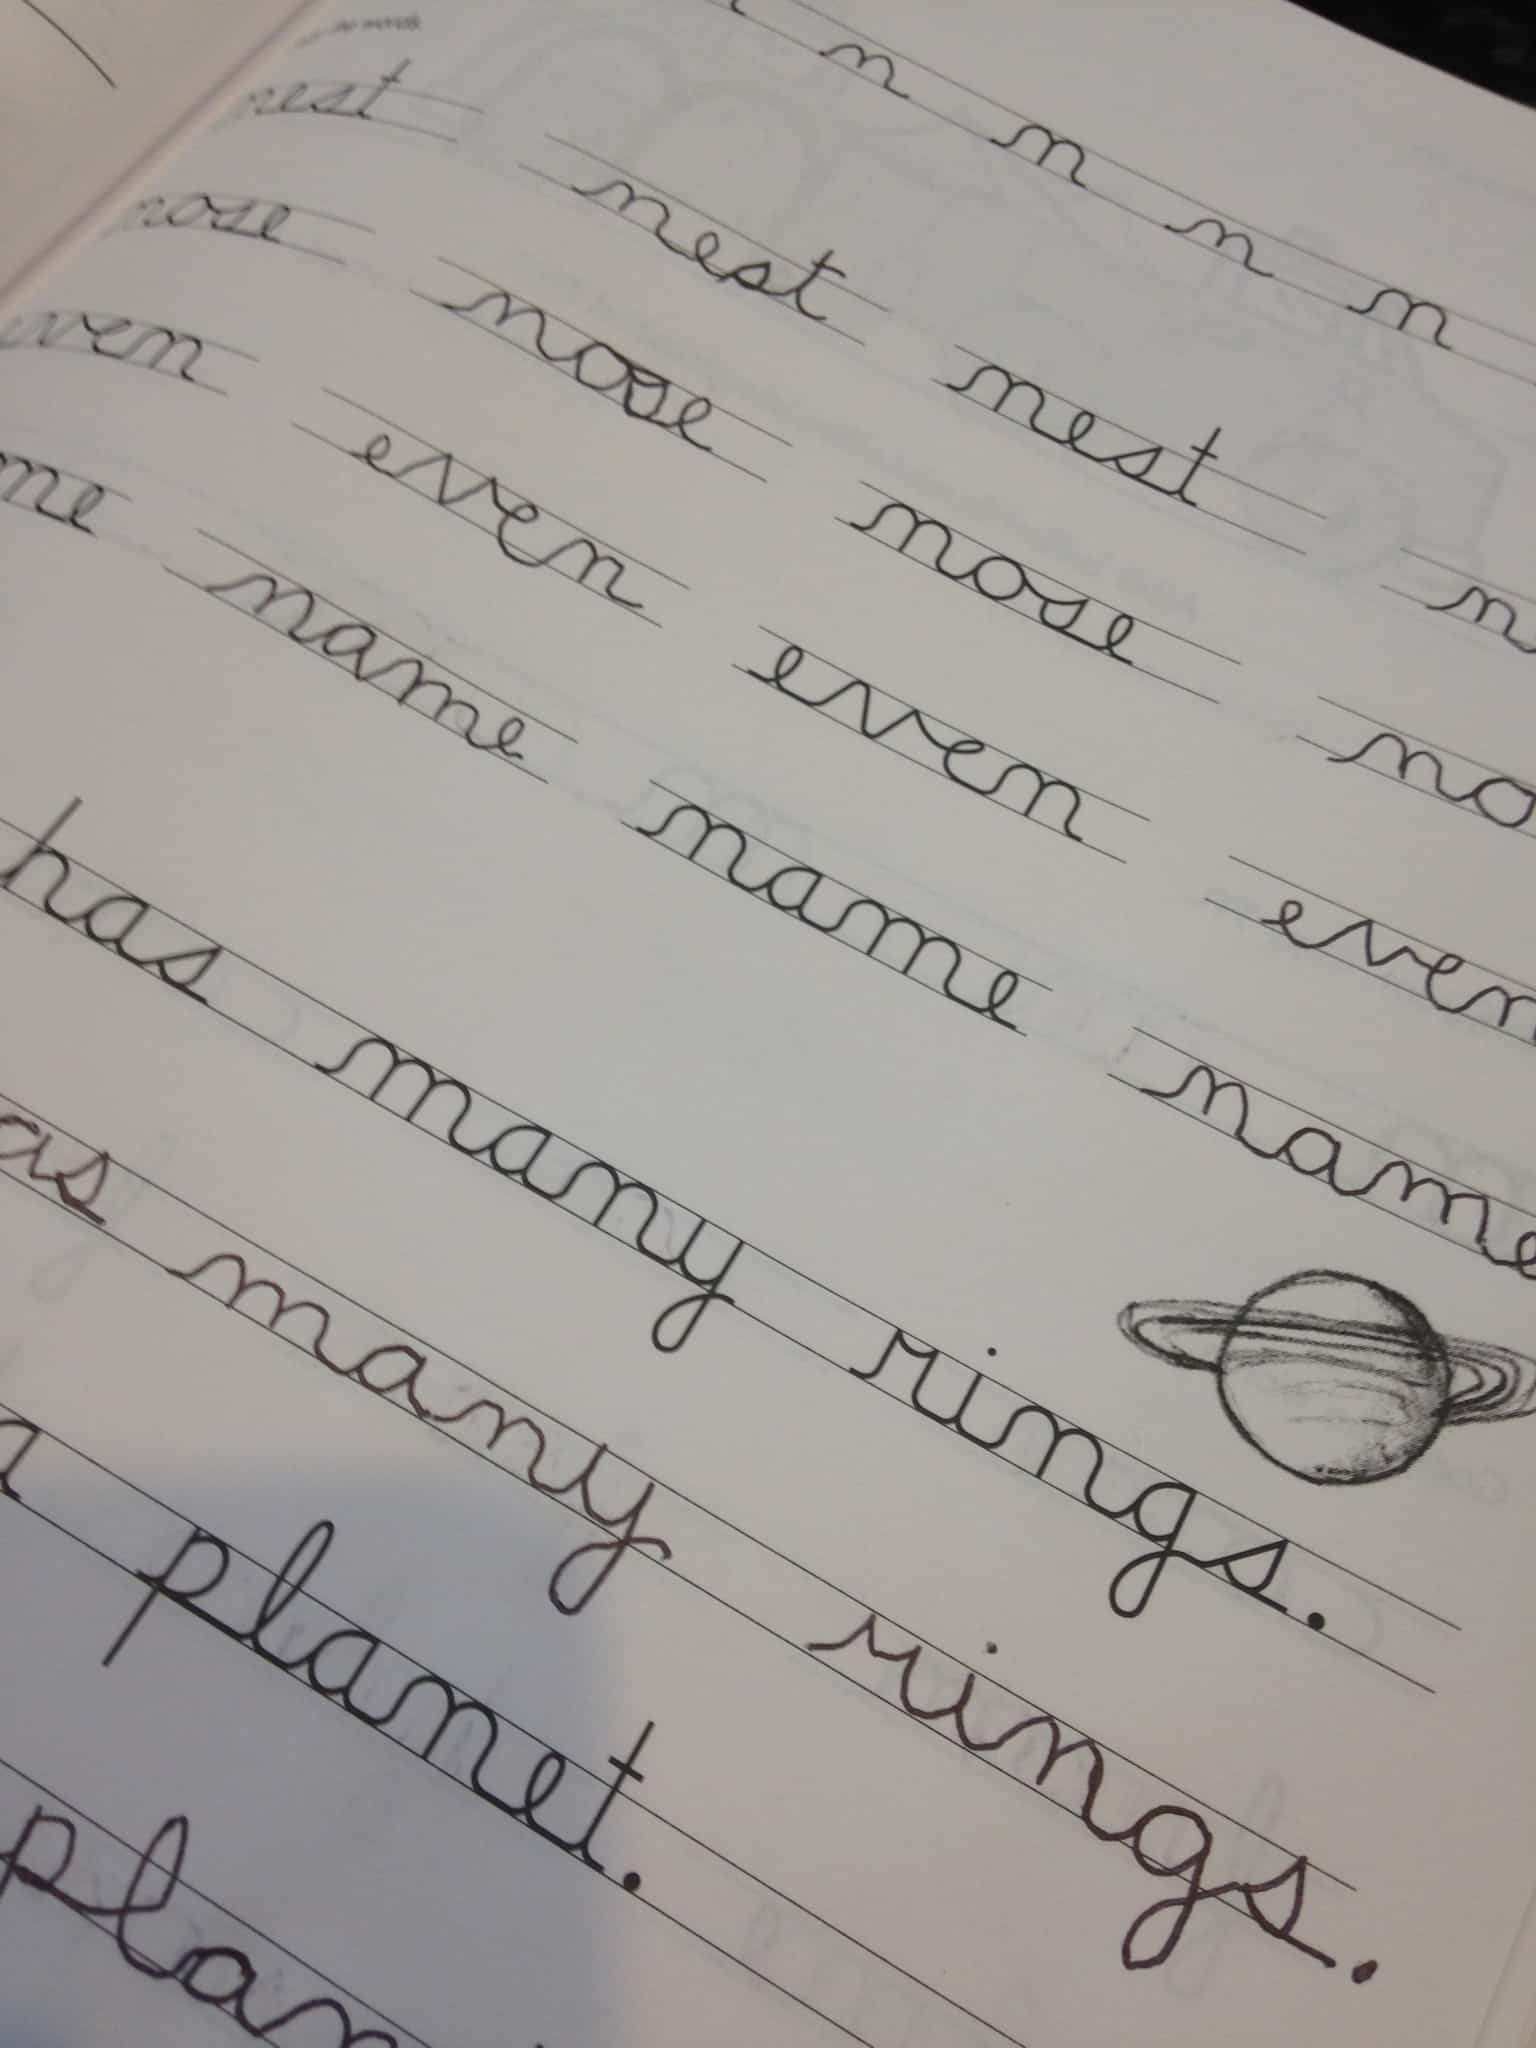 n n n n
words.
nest nest nest n
nose nose nose no
even even even even
me name name name
has many rings.
as many rings.
a planet.
plan